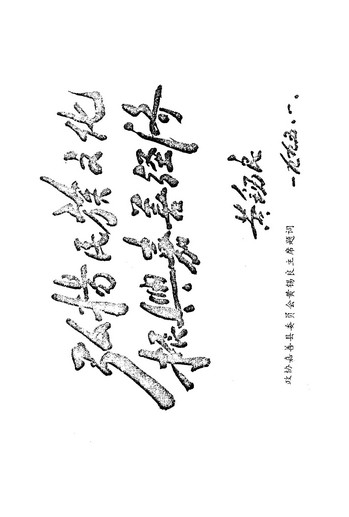 弘扬民族文化
振兴嘉善经济
黄锡良
一九九五.一.
政协嘉善县委员会黄锡良主席题词